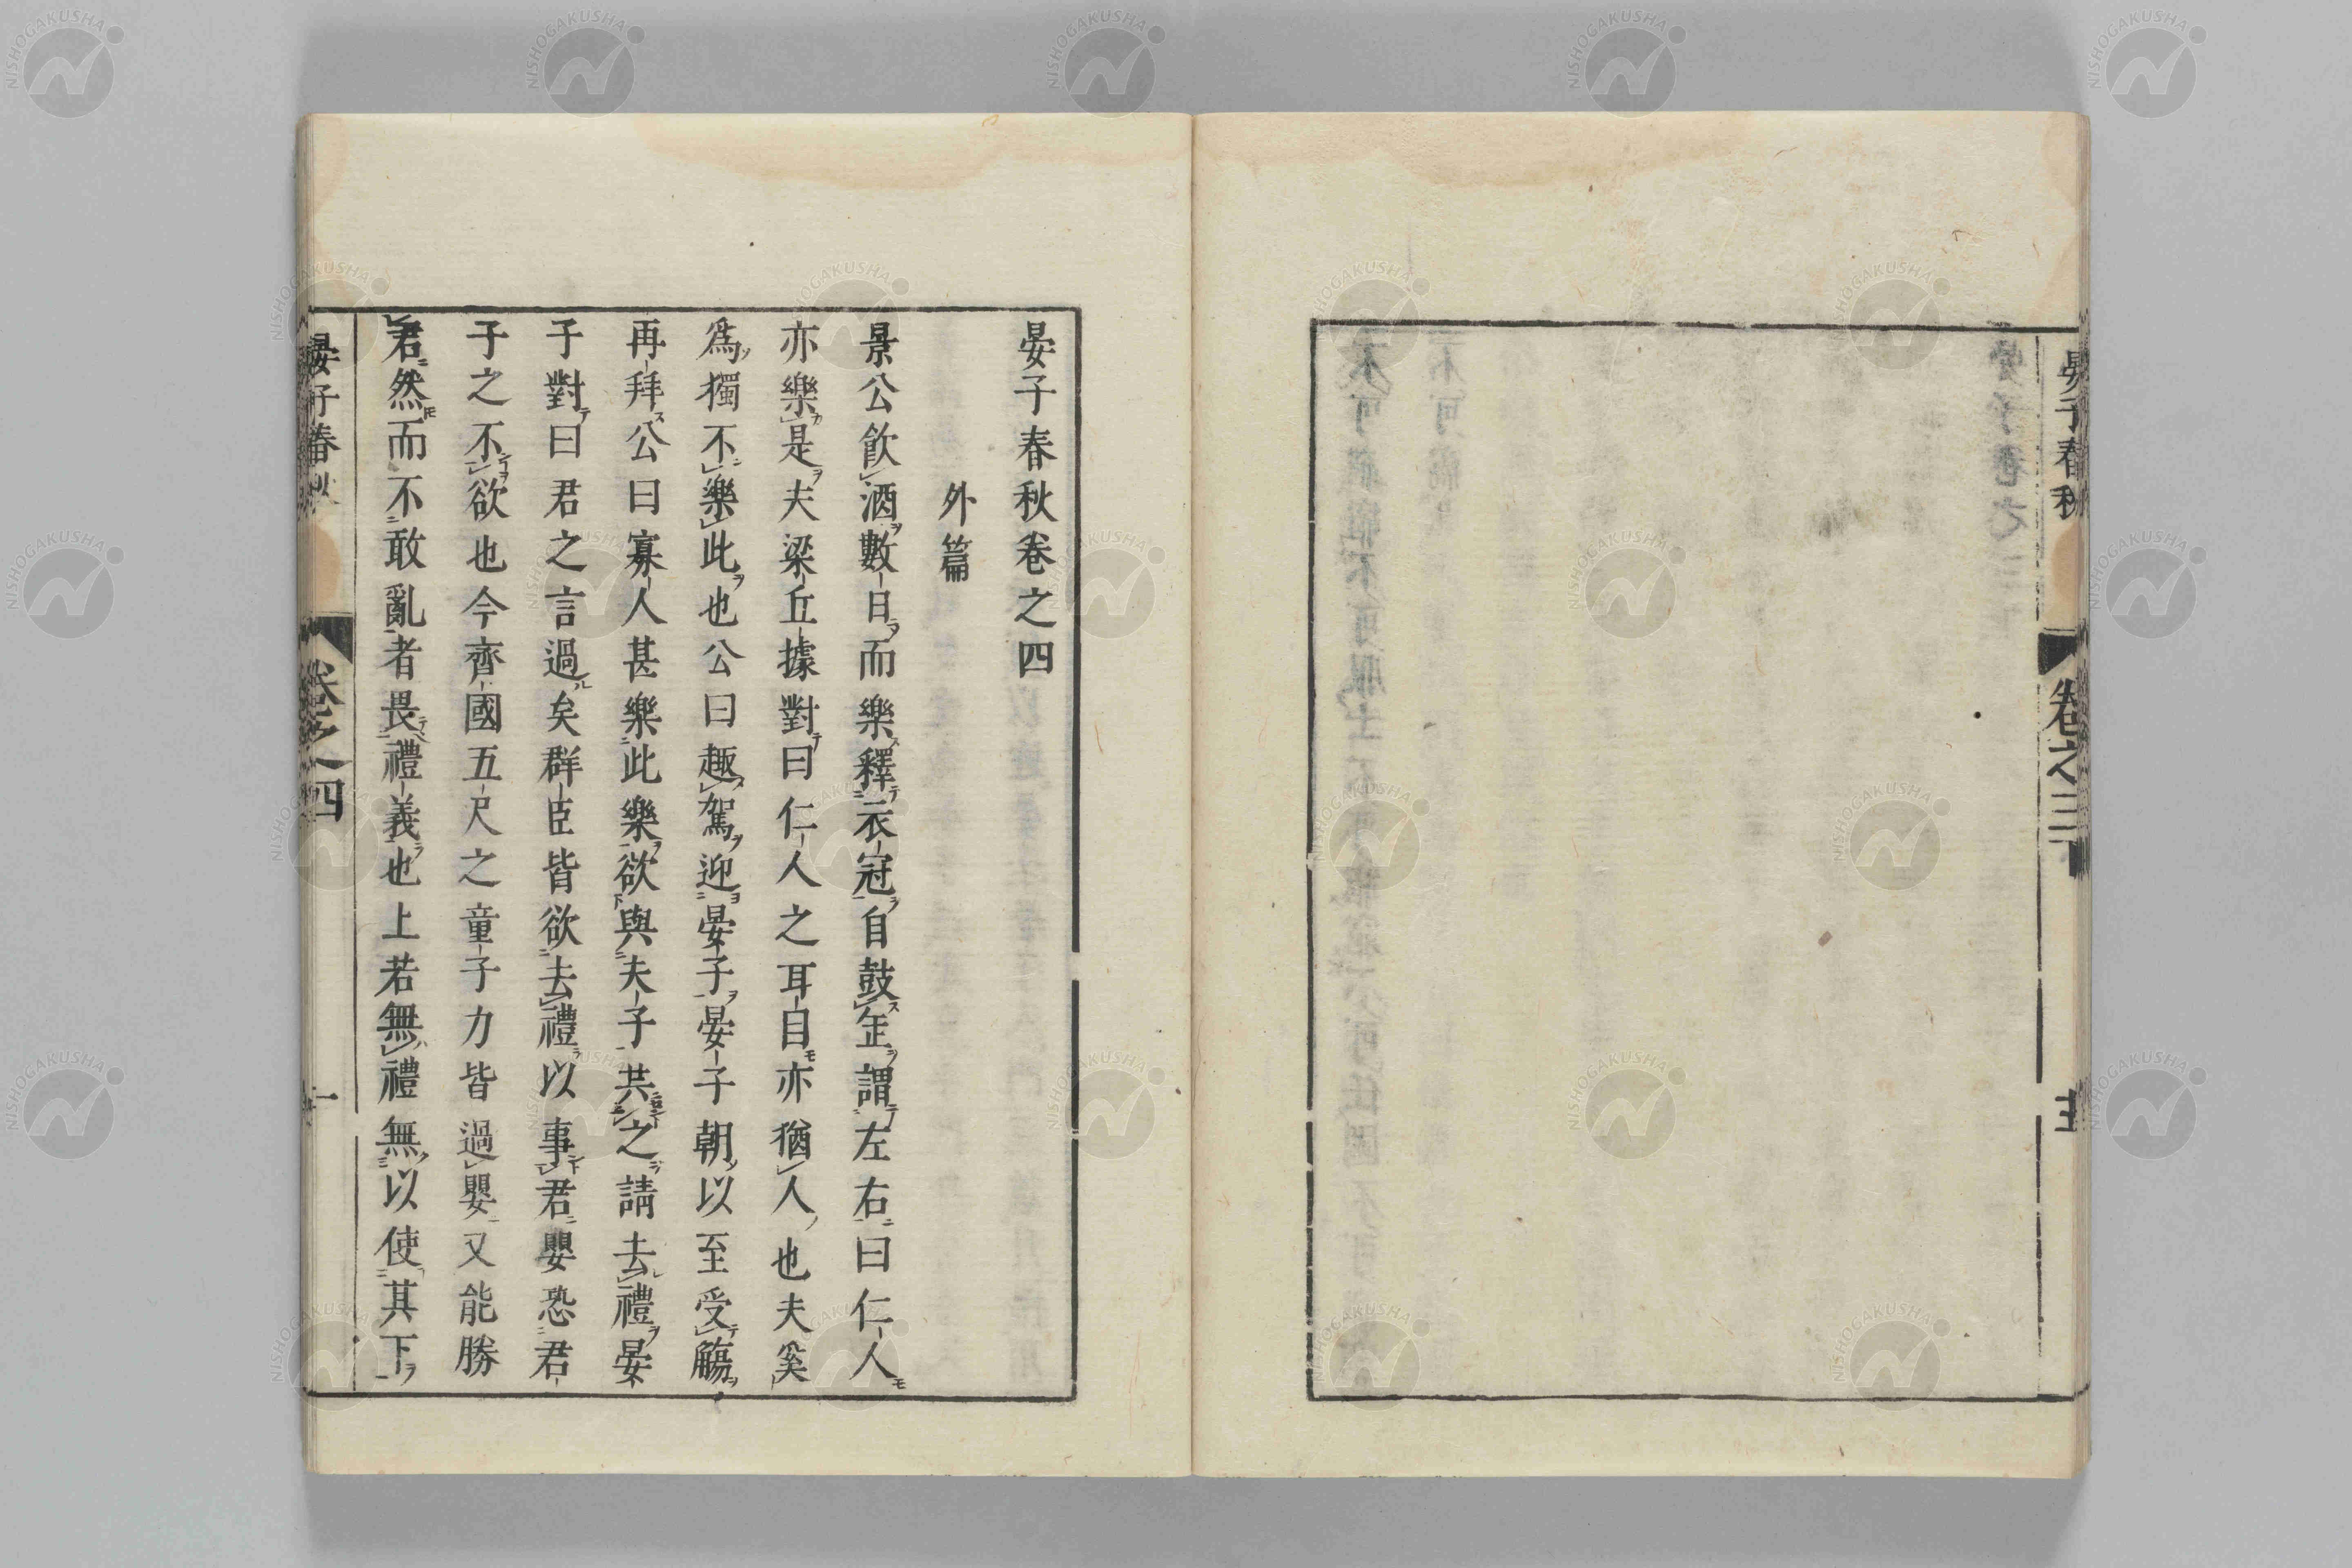 晏子春秋
卷之三下
晏子春秋卷之四
外篇
景公飮酒數日而樂釋衣冠自鼓缶謂左右曰仁人
亦樂是夫梁丘據對曰仁人之耳目亦猶人也夫奚
爲獨不樂此也公曰趣駕迎晏子晏子朝以至受觴
再拜公曰寡人甚樂此樂欲與夫子共之請去禮晏
子對曰君之言過矣群臣皆欲去禮以事君嬰恐君
子之不欲也今齊國五尺之童子力皆過嬰又能勝
君然而不敢亂者畏禮義也上若無禮無以使其下
晏子春秋
卷之四
一
NISHOGAKUSHA